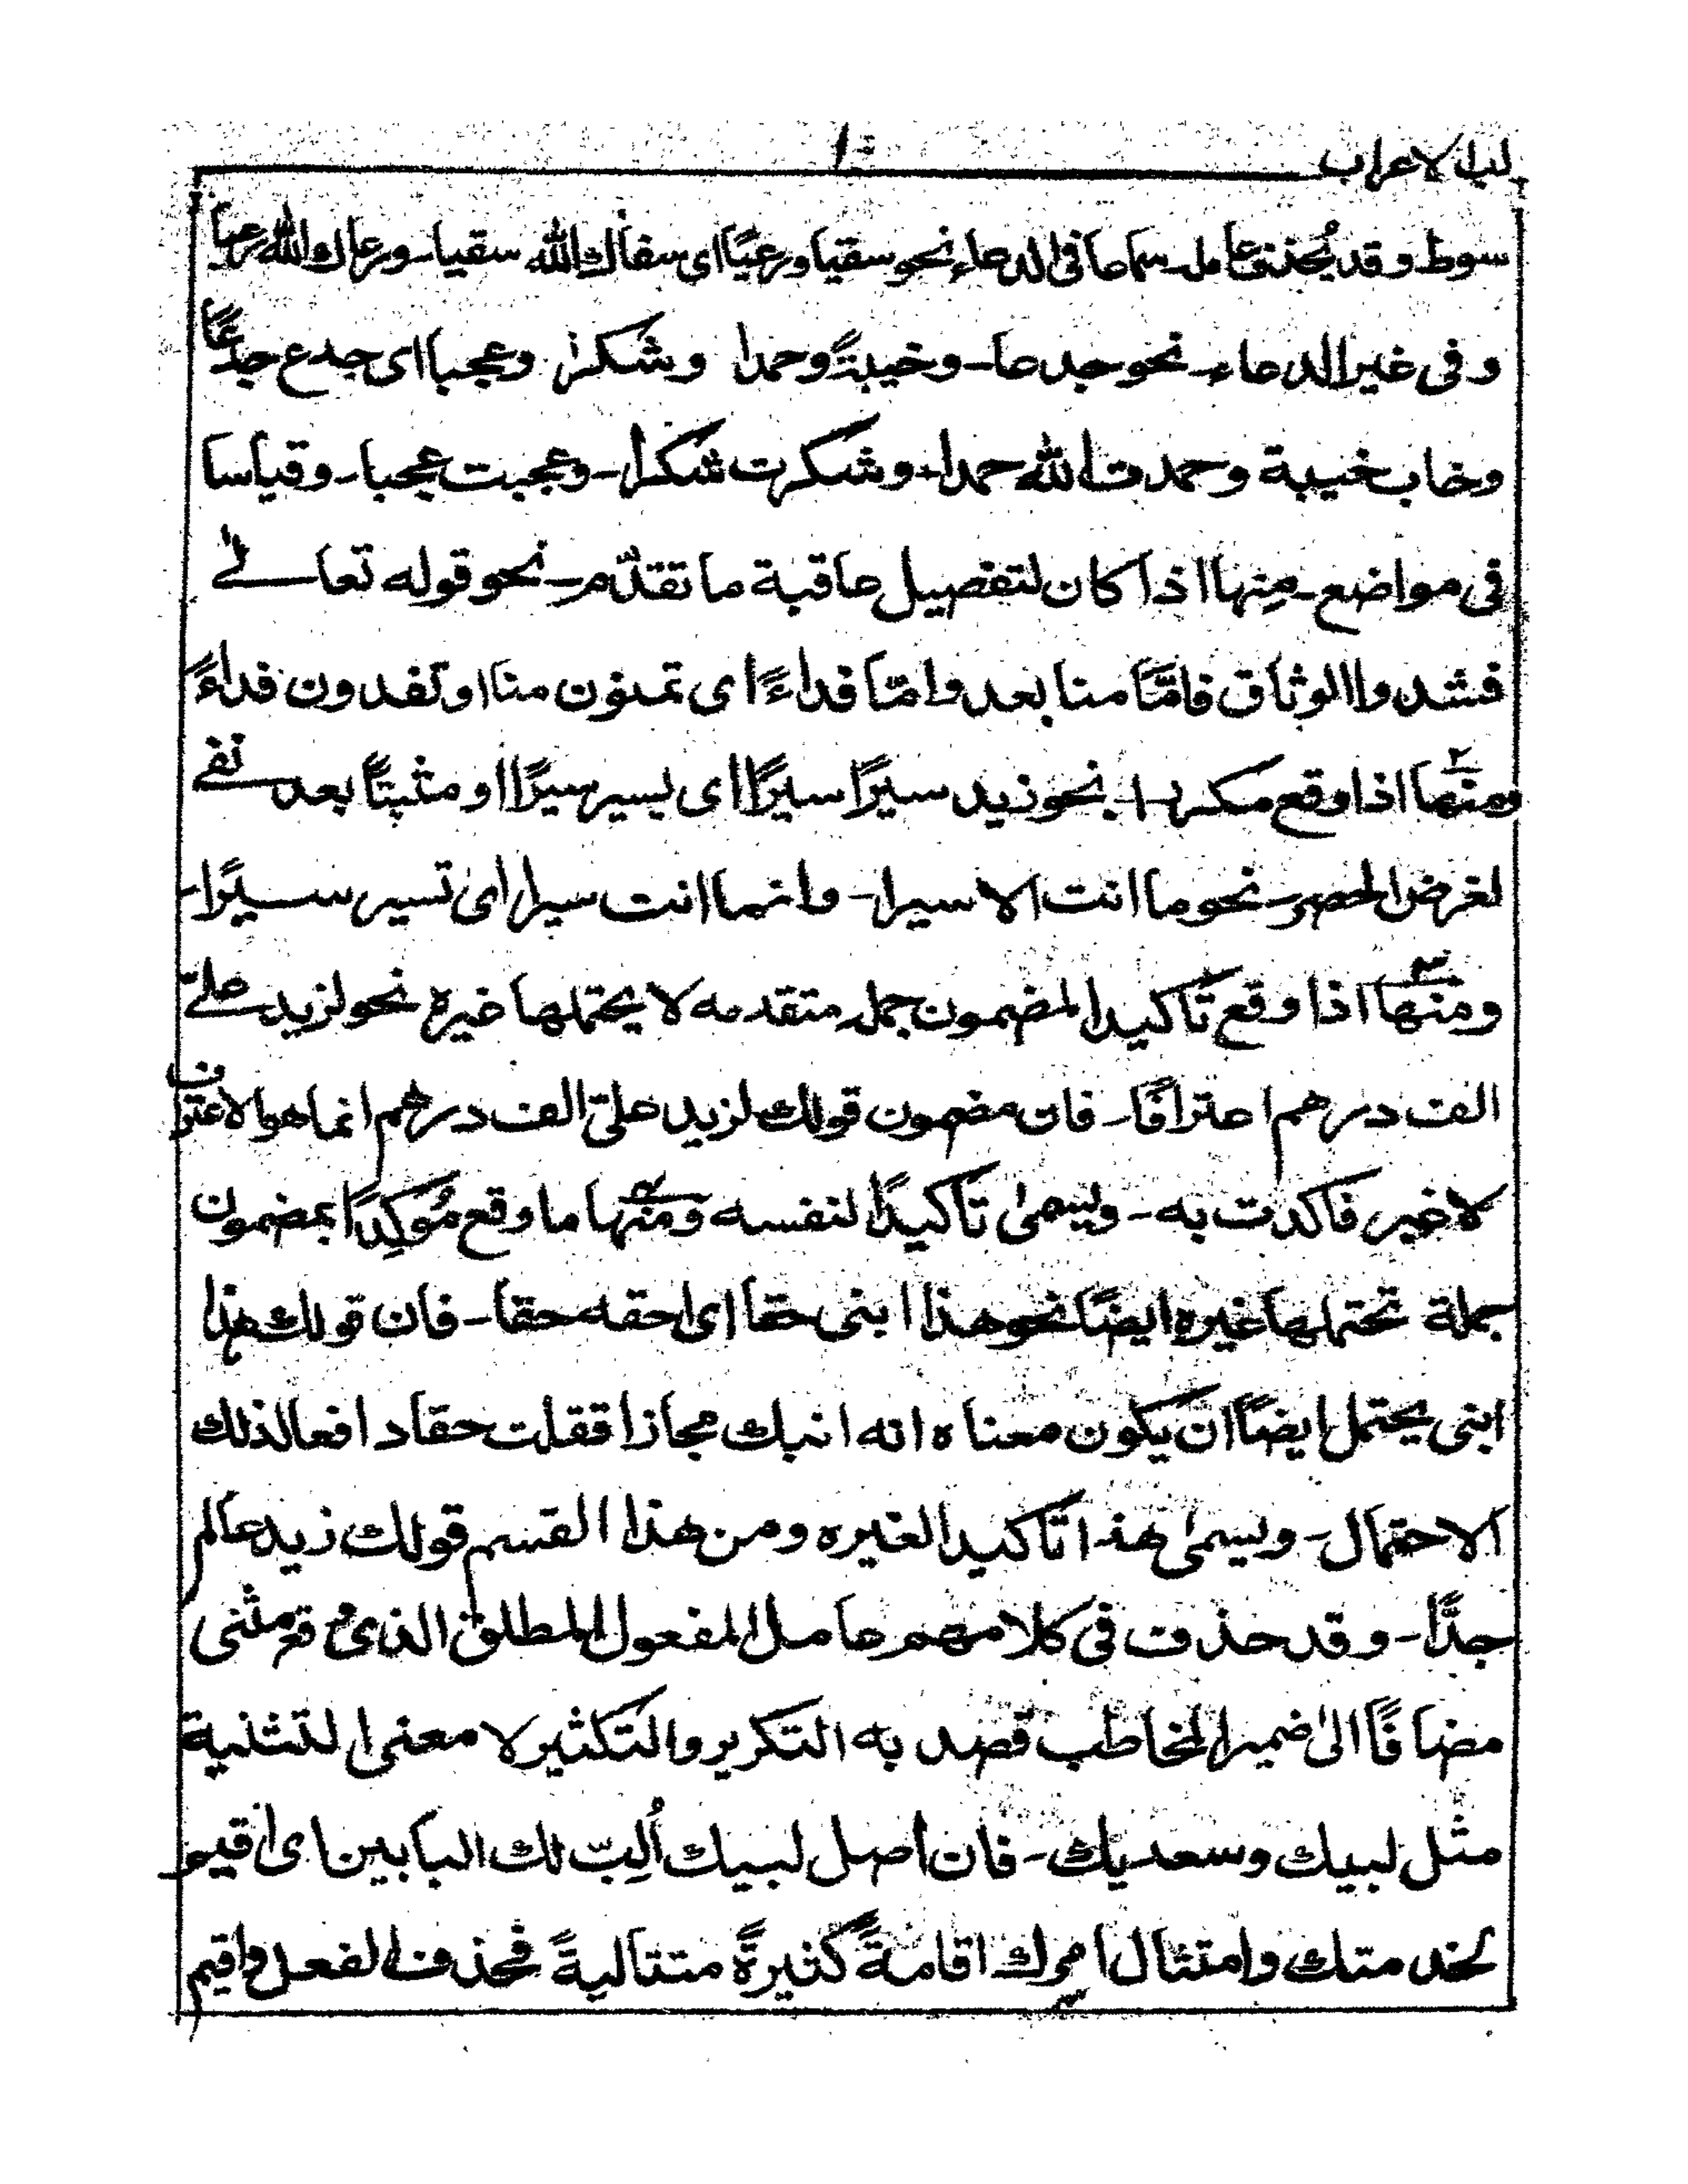 لباب الاعراب
١٠
سوط وقد يُحذف عامله سماعا فى الدعاء نحو سقيا ورعيًا اى سقاك الله سقيا ـ ورعاك الله رعيا
وفى غير الدعاء ـ نحو جدعا ـ وخيبةً وحمدا وشكرا وعجبا اى جدع جدعًا
وخاب خيبة وحمدت الله حمدا ـ وشكرت شكرا ـ وعجبت عجبا ـ وقياسا
فى مواضع ـ مِنها اذا كان لتفصيل عاقبة ما تقدّم ـ نحو قوله تعالىٰ
فشدوا الوثاق فامَّا منا بعد وامّا فداءً اى تمنون منا او تفدون فداءً
ومنها٢ اذا وقع مكررا ـ نحو زيد سيرًا سيرًا اى يسير سيرًا او مثبتًا بعد نفى
لغرض الحصر ـ نحو ما انت الا سيرا ـ وانما انت سيرا اى تسير سيرًا ـ
ومنها٣ اذا وقع تاكيدا لمضمون جمله متقدمه لا يحتملها غيره نحو لزيد علىّ
الف درهم اعترافًا ـ فان مضمون قولك لزيد علىّ الف درهم انما هو الاعتراف
لا غير فاكدت به ـ ويسمىٰ تاكيدًا لنفسه ومنها٤ ما وقع مُوكِدًا بمضمون
جملة تحتملها غيره ايضًا نحو هذا ابنى حقا اى احقه حقا ـ فان قولك هذا
ابنى يحتمل ايضًا ان يكون معناه انه ابنك مجازا فقلت حقا دافعا لذلك
الاحتمال ـ ويسمىٰ هذا تاكيدا لغيره ومن هذا القسم قولك زيد عالم
جدًّا ـ وقد حذف فى كلامهم عامل المفعول المطلق الذى وقع مثنى
مضافًا الىٰ ضمير المخاطب قصد به التكرير والتكثير لا معنى التثنية
مثل لبيك وسعديك ـ فان اصل لبيك اُلِبّ لك البابين اى اقيم
لخدمتك وامتثال امرك اقامةً كثيرةً متتاليةً فحذف الفعل واقيم